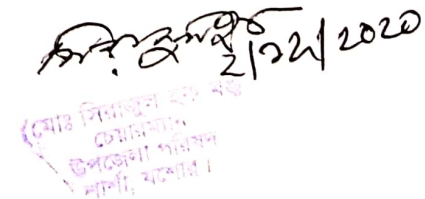 ২/১২/2020
(মোঃ সিরাজুল হক
চেয়ারম্যান
উপজেলা পরিষদ
শার্শা, যশোর।